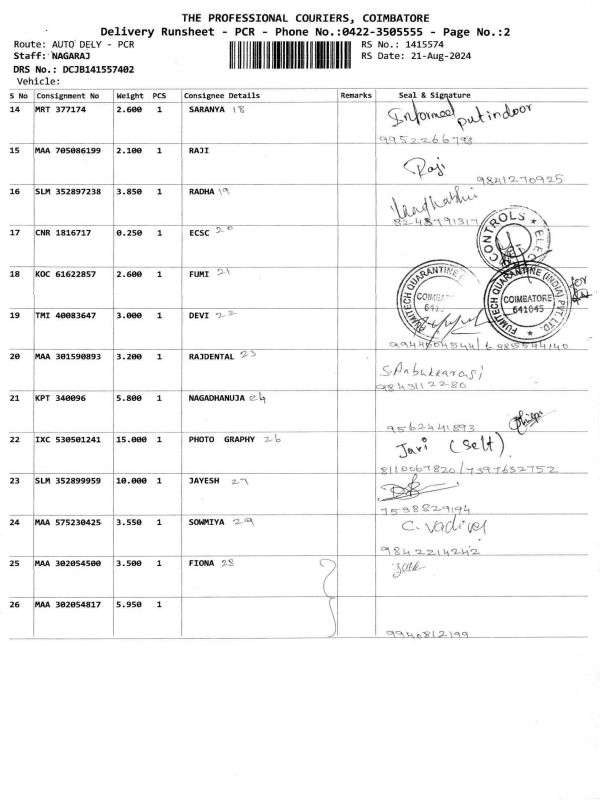 THE PROFESSIONAL COURIERS, COIMBATORE
Delivery Runsheet - PCR - Phone No.:0422-3505555 - Page No.:2
Route: AUTO DELY - PCR RS No.: 1415574
Staff: NAGARAJ RS Date: 21-Aug-2024
DRS No.: DCJB141557402
Vehicle:
S No Consignment No Weight PCS Consignee Details Remarks Seal & Signature
14 MRT 377174 2.600 1 SARANYA 18 Informed put indoor
9952266798
15 MAA 705086199 2.100 1 RAJI Raji
9841270925
16 SLM 352897238 3.850 1 RADHA 19
8248791317
17 CNR 1816717 0.250 1 ECSC 20 CONTROLS ★ ELEC
18 KOC 61622857 2.600 1 FUMI 21 FUMITECH QUARANTINE (INDIA) PVT. LTD. COIMBATORE 641045 for
19 TMI 40083647 3.000 1 DEVI 22
9944604544/
20 MAA 301590893 3.200 1 RAJDENTAL 23 S.Anbukkarasi
9843112280
21 KPT 340096 5.800 1 NAGADHANUJA 24
9562441893
22 IXC 530501241 15.000 1 PHOTO GRAPHY 26 Jari (Self)
8110067820/7397632752
23 SLM 352899959 10.000 1 JAYESH 27
7598829194
24 MAA 575230425 3.550 1 SOWMIYA 29 C. Vadivel
9842214242
25 MAA 302054500 3.500 1 FIONA 28
26 MAA 302054817 5.950 1
9940812199